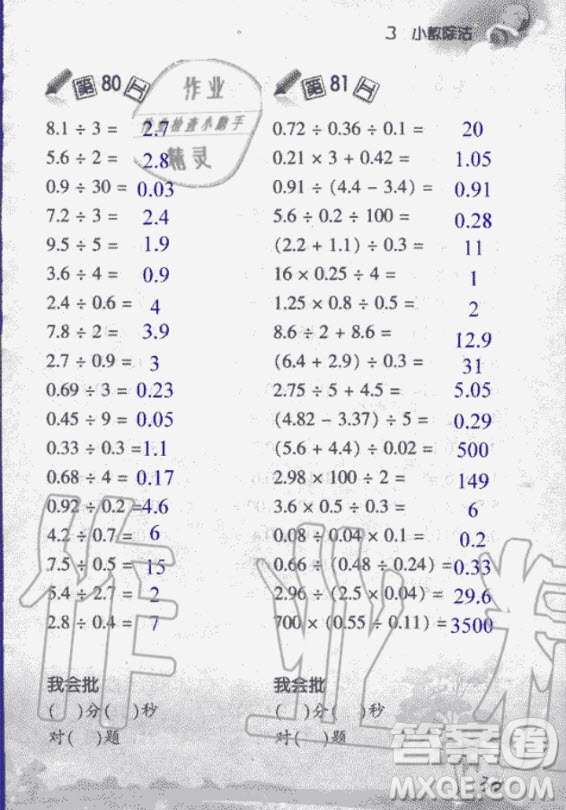 3 小数除法
第80天
8.1 ÷ 3 = 2.7
5.6 ÷ 2 = 2.8
0.9 ÷ 30 = 0.03
7.2 ÷ 3 = 2.4
9.5 ÷ 5 = 1.9
3.6 ÷ 4 = 0.9
2.4 ÷ 0.6 = 4
7.8 ÷ 2 = 3.9
2.7 ÷ 0.9 = 3
0.69 ÷ 3 = 0.23
0.45 ÷ 9 = 0.05
0.33 ÷ 0.3 = 1.1
0.68 ÷ 4 = 0.17
0.92 ÷ 0.2 = 4.6
4.2 ÷ 0.7 = 6
7.5 ÷ 0.5 = 15
5.4 ÷ 2.7 = 2
2.8 ÷ 0.4 = 7
我会批
( )分( )秒
对( )题
第81天
0.72 ÷ 0.36 ÷ 0.1 = 20
0.21 × 3 + 0.42 = 1.05
0.91 ÷ (4.4 − 3.4) = 0.91
5.6 ÷ 0.2 ÷ 100 = 0.28
(2.2 + 1.1) ÷ 0.3 = 11
16 × 0.25 ÷ 4 = 1
1.25 × 0.8 ÷ 0.5 = 2
8.6 ÷ 2 + 8.6 = 12.9
(6.4 + 2.9) ÷ 0.3 = 31
2.75 ÷ 5 + 4.5 = 5.05
(4.82 − 3.37) ÷ 5 = 0.29
(5.6 + 4.4) ÷ 0.02 = 500
2.98 × 100 ÷ 2 = 149
3.6 × 0.5 ÷ 0.3 = 6
0.08 ÷ 0.04 × 0.1 = 0.2
0.66 ÷ (0.48 ÷ 0.24) = 0.33
2.96 ÷ (2.5 × 0.04) = 29.6
700 × (0.55 ÷ 0.11) = 3500
我会批
( )分( )秒
对( )题
作业
检查小助手
精灵
作业精
答案圈
MXQE.COM